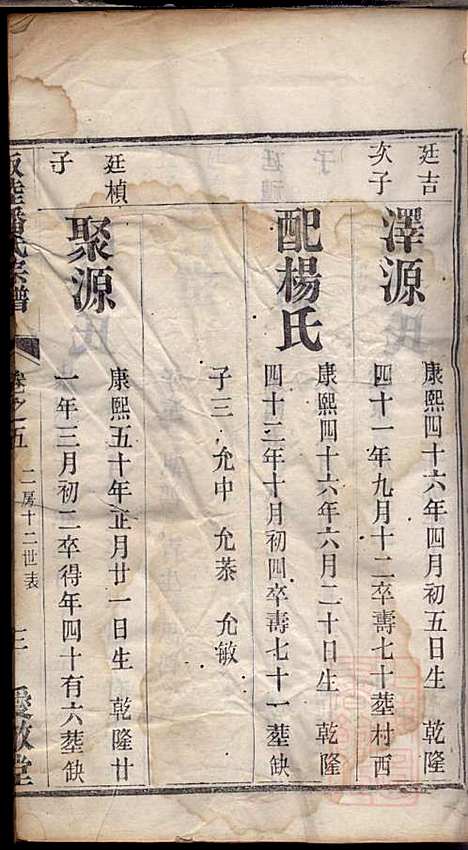 廷吉
次子
澤源
康熙四十六年四月初五日生 乾隆
四十一年九月十二卒壽七十葬村西
配楊氏
康熙四十六年六月二十日生 乾隆
四十二年十月初四卒壽七十一葬缺
子三 允中 允恭 允敏
廷楨
子
聚源
康熙五十年正月廿一日生 乾隆廿
一年三月初二卒得年四十有六葬缺
潘氏宗譜
卷之五
二房十二世表
愛敬堂